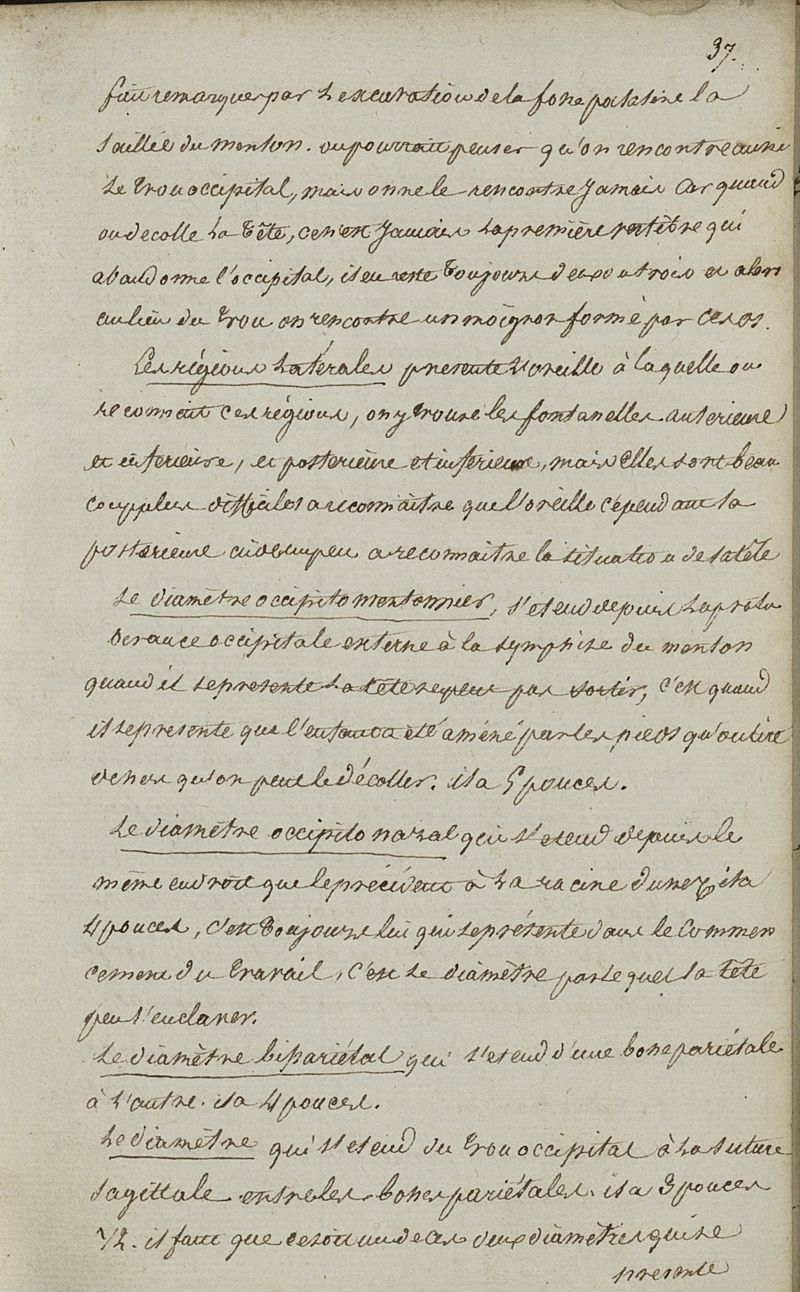 37.
fait remarquer par l'excavation de la fosse palatine la
saillée du menton. on pourrait penser qu'on rencontre aussi
le trou occipital, mais on ne le rencontre Jamais Car quand
on decolle la tête, ce n'est Jamais la première vertèbre qui
abandonne l'occipital, il en reste toujours deux ou trois et alors
au lieu du trou on rencontre un moignon formé par ces os.
Les régions latérales presente l'oreille à laquelle on
reconnait ces régions, on y trouve les fontanelles anterieure
et inferieure, et posterieure et inferieure, mais elles sont beau
coup plus difficiles a reconnaître que l'oreille cépendant la
posterieure aide un peu a reconnaitre la situation de la tête
Le diamètre occipito mentonnier, s'etend depuis la protu
berance occipitale externe à la symphise du menton
quand il se presente la tête ne peut pas sortir, c'est quand
il se presente que l'enfant a été améné par les pieds qu'on tire
dehors qu'on peut le décoller. il a 5 pouces.
Le diamètre occipito nazal qui s'etend depuis le
même endroit que le précédent à la racine du nez, il a
4 pouces, c'est toujours lui qui se présente dans le Commen
cement du travail, c'est le diamètre par lequel la tête
peu s'enclaver.
Le diamètre bipariétal qui s'etend d'une bosse pariétale
à l'autre. il a 4 pouces.
Le diamètre qui s'etend du trou occipital à la suture
sagittale entre les bosses pariétales. il a 3 pouces
1/2. il faut que ce soit un de ces deux diamètres qui se
presente